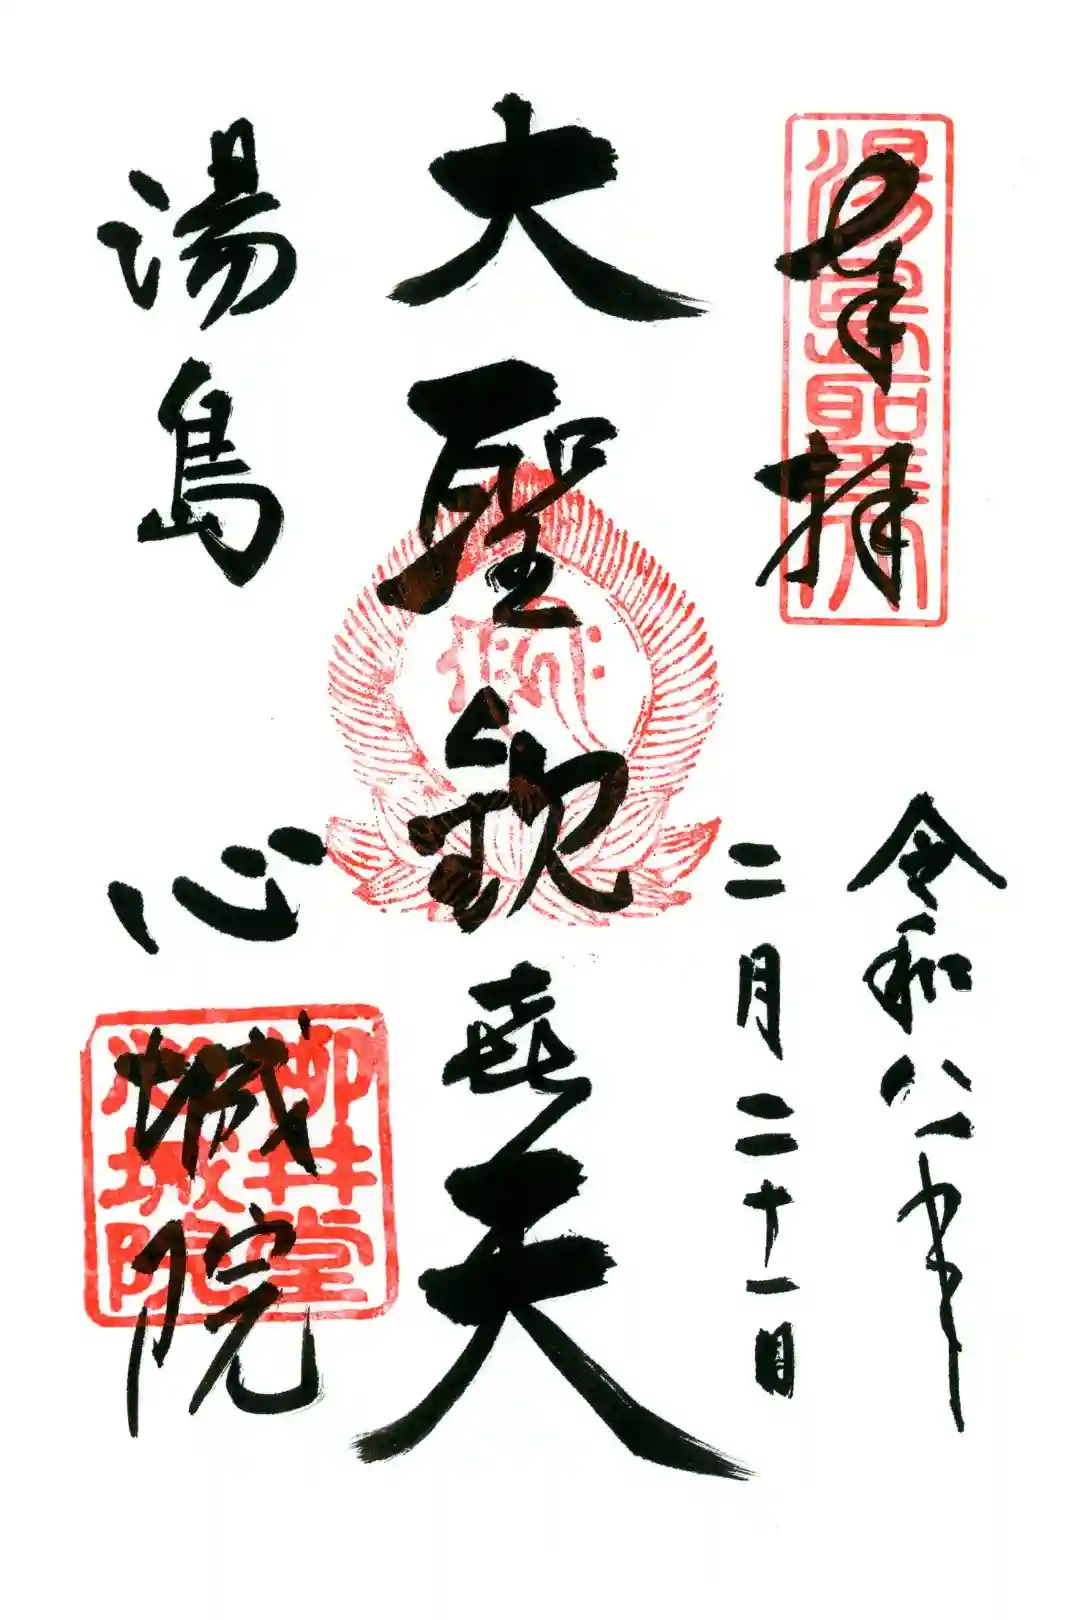 奉拝
湯島聖天
令和八年
二月二十一日
大聖歓喜天
湯島
心城院
柳井堂
心城院